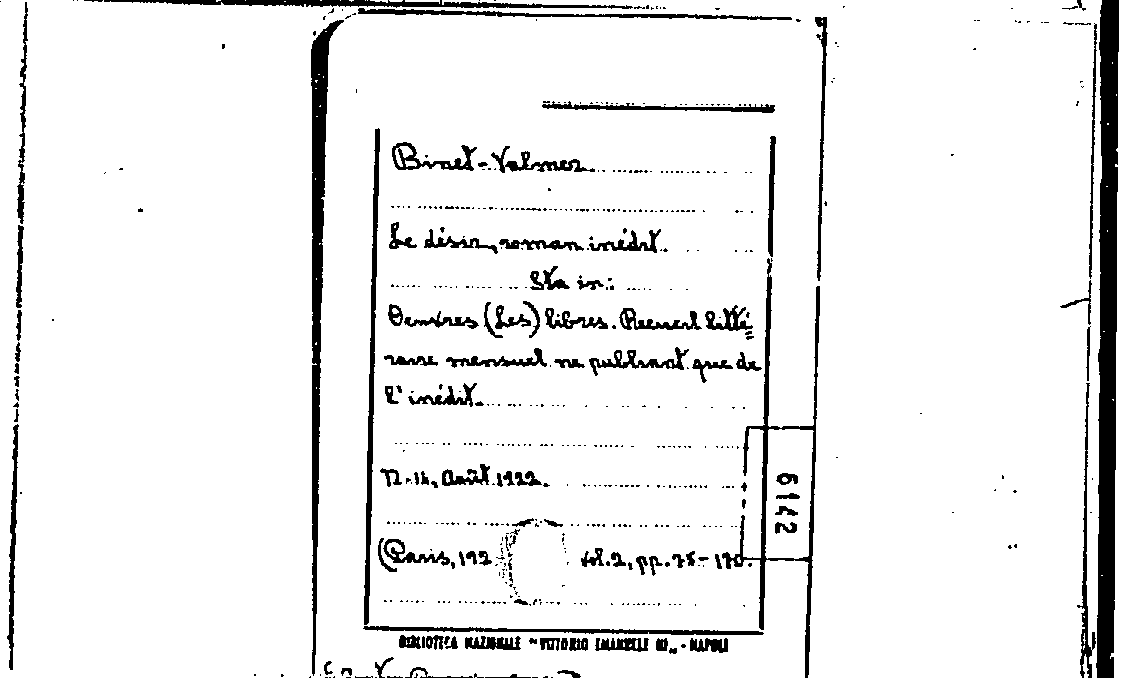 Binet-Valmer.
Le désir, roman inédit.
Sta in:
Oeuvres (Les) libres. Recueil litté=
raire mensuel ne publiant que de
l'inédit.
N. 14, Août 1922.
(Paris, 192 vol. 2, pp. 75-170.
6142
BIBLIOTECA NAZIONALE "VITTORIO EMANUELE III" - NAPOLI